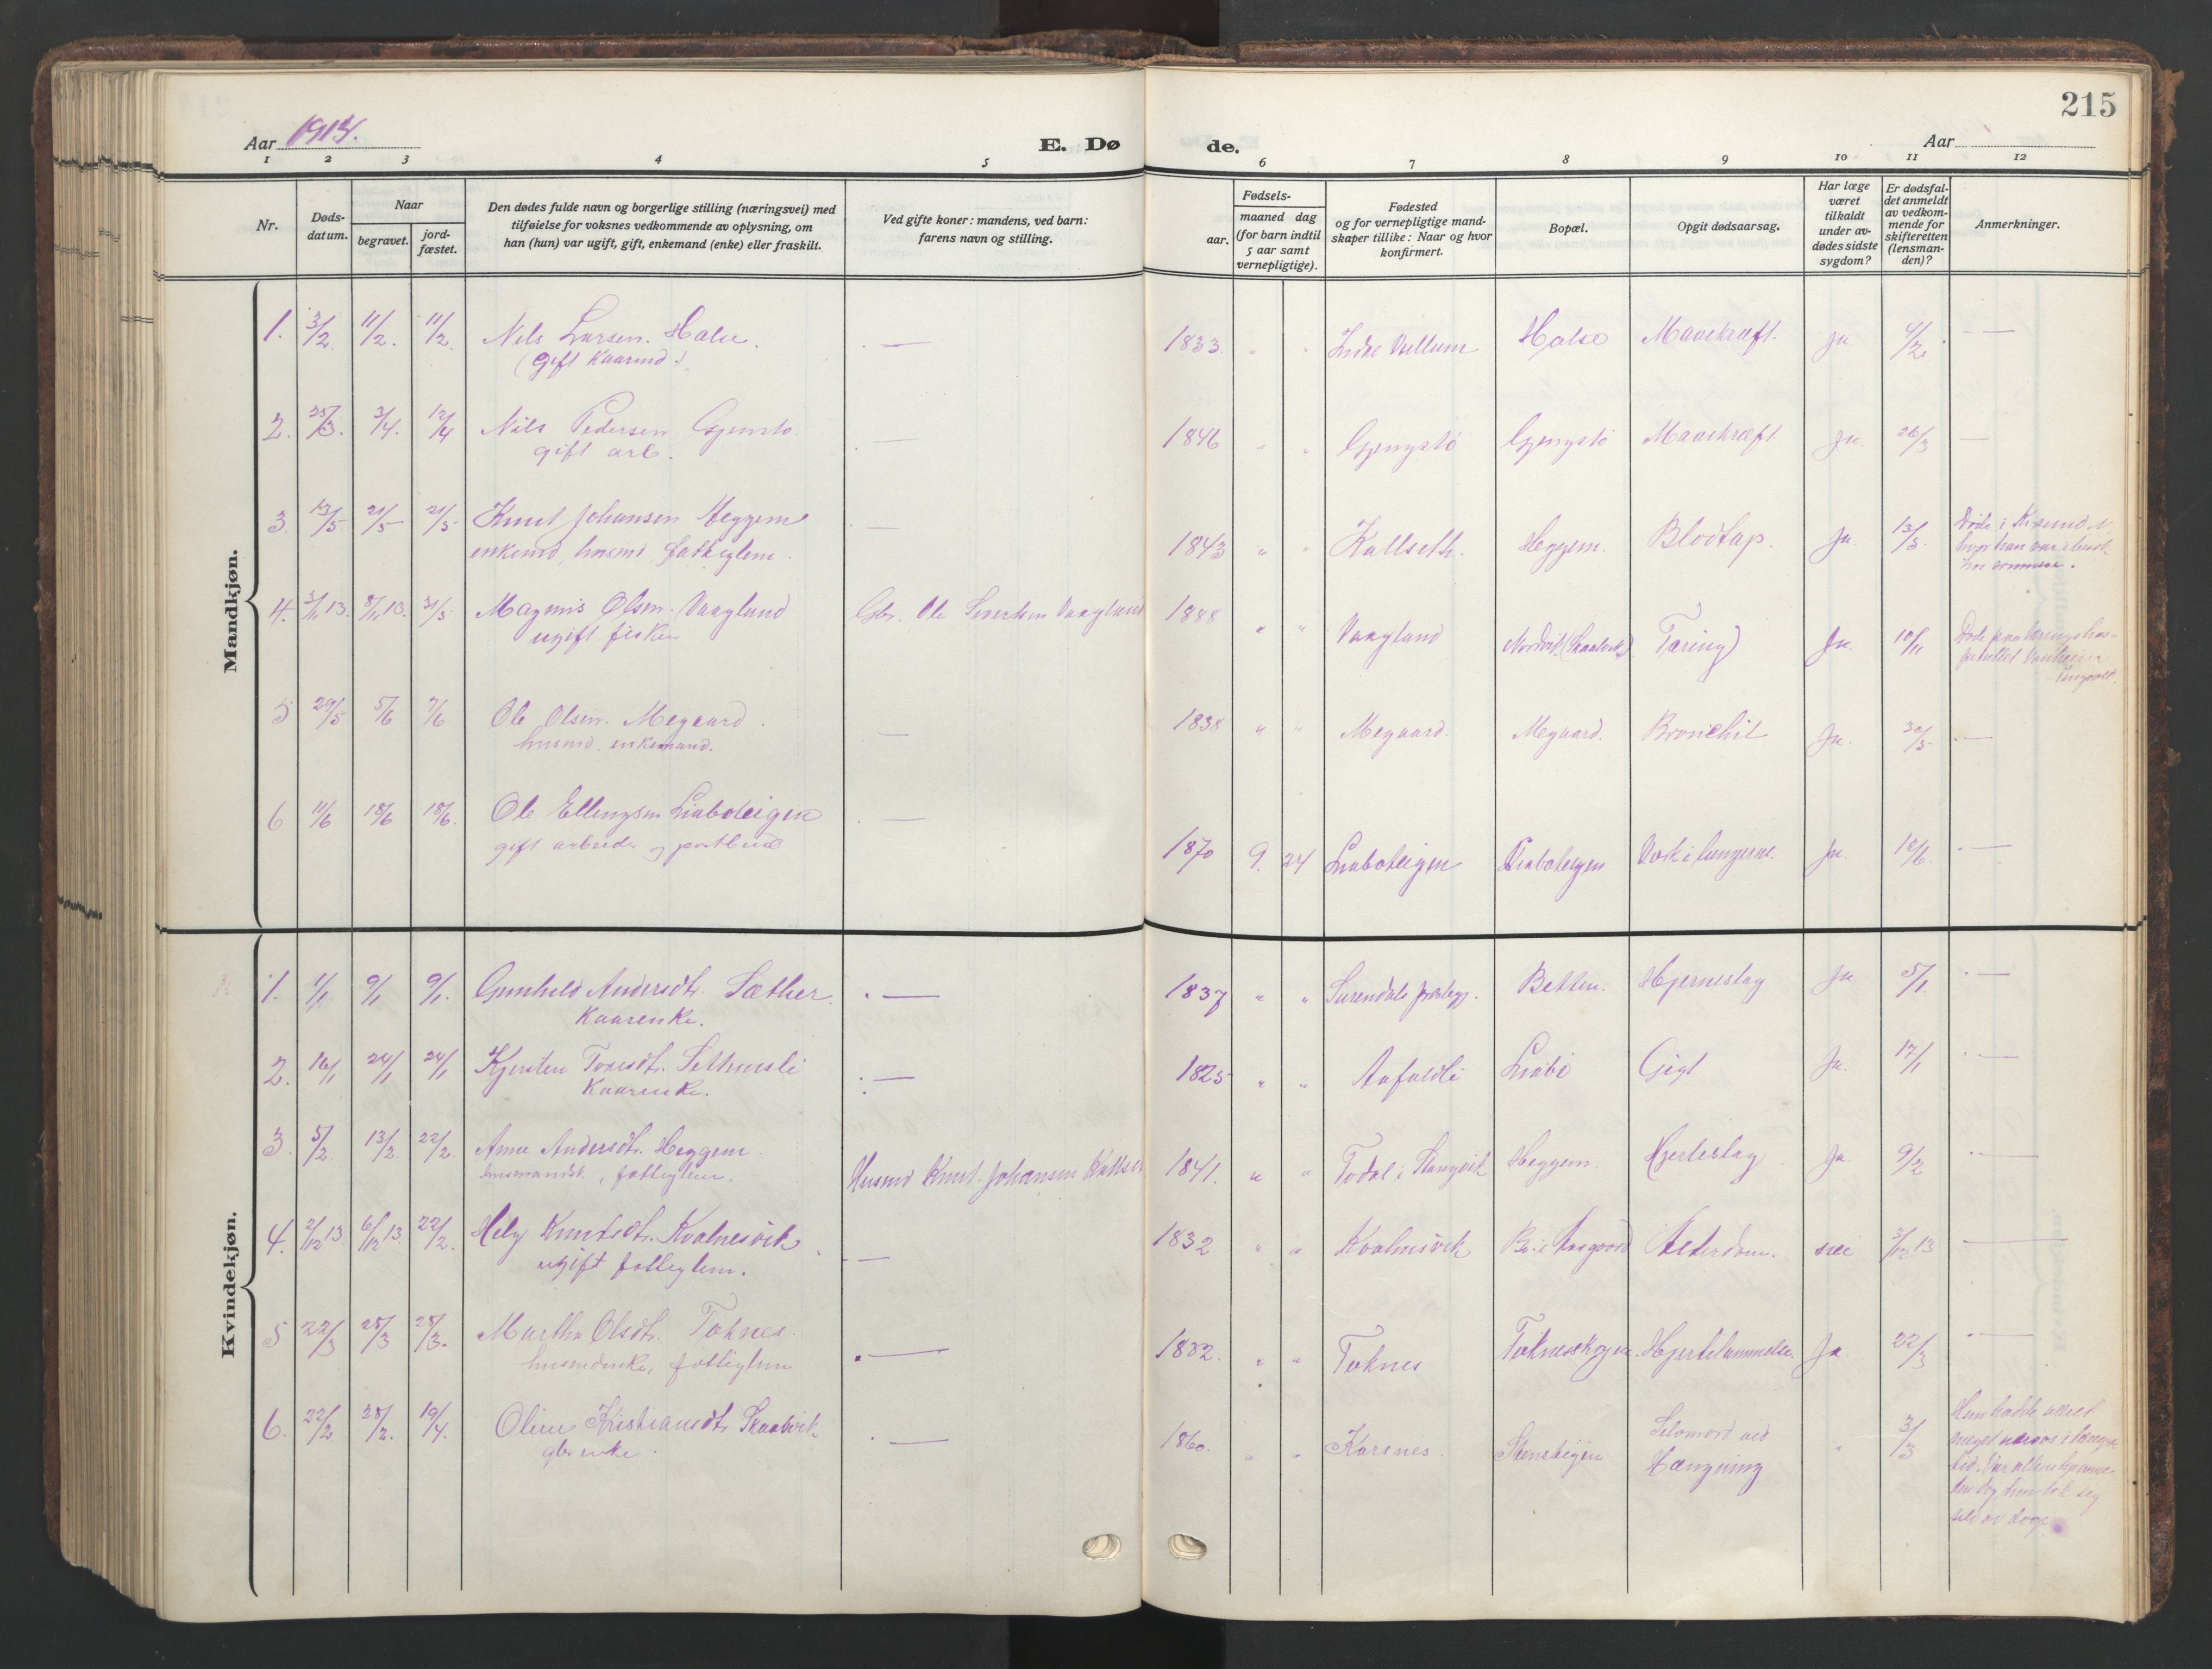 215
Aar 1914.
E. Dø
de.
Aar
1 2 3 4 5 6 7 8 9 10 11 12
Nr.
Døds-
datum.
Naar
begravet.
jord-
fæstet.
Den dødes fulde navn og borgerlige stilling (næringsvei) med
tilføielse for voksnes vedkommende av oplysning, om
han (hun) var ugift, gift, enkemand (enke) eller fraskilt.
Ved gifte koner: mandens, ved barn:
farens navn og stilling.
Fødsels-
aar.
maaned dag
(for barn indtil
5 aar samt
vernepligtige).
Fødested
og for vernepligtige mand-
skaper tillike: Naar og hvor
konfirmert.
Bopæl.
Opgit dødsaarsag.
Har læge
været
tilkaldt
under av-
dødes sidste
sygdom?
Er dødsfal-
det anmeldt
av vedkom-
mende for
skifteretten
(lensman-
den)?
Anmerkninger.
Mandkjøn.
1. 3/2 11/2. 11/2 Nils Larsen Halse. — 1833. " " Indre Halse Mavekræft. Ja 4/2. —
(gift Kaarmd.)
2. 25/3. 3/4. 12/4 Nils Pedersen Gjengstø — 1846 " " Gjengstø Gjengstø Mavekræft Ja. 26/3 —
gift arb.
3. 13/5 21/5 21/5 Knut Johansen Heggem — 1843 " " Kallseth. Heggem. Blodtap. Ja 13/5. Døde i Kr.sund N
enkemd, husmd, fattiglem. hvor han var
4. 3/11 13. 8/11 13. 31/5 Magnus Olsen Vaagland Gbr. Ole Sivertsen Vaagland 1888 " " Vaagland Nordvik (Skaalvik) Tæring Ja. 10/11 Døde paa tæringshos-
ugift fisker pitallet
Tingvoll.
5 29/5 5/6 7/6 Ole Olsen Megaard. — 1838 " " Megaard. Megaard. Bronchit Ja. 30/5 —
husmd. enkemand.
6 11/6 18/6 18/6. Ole Ellingsen Liabøteigen — 1870 9. 24 Liabøteigen Liabøteigen Værk i lungerne. Ja. 12/6 —
gift arbeider og postbud
Kvindekjøn.
1. 1/1 9/1 9/1. Gunhild Andersdtr. Sæther. — 1837 " " Surendals præstegj. Betten. Hjerneslag Ja 5/1. —
Kaarenke.
2. 16/1 24/1 24/1 Kjersten Toresdtr. — 1825 " " Liabø Gigt Ja. 17/1 —
Kaarenke.
3. 5/2 13/2 22/2. Anne Andersdtr. Heggem. Husmd Knut Johansen Kallset 1841. " " Todal i Stangvik Heggem. Hjerteslag Ja. 9/2 —
husmandsk., fattiglem.
4. 2/12 13. 6/12 13. 22/2. Helg Knutsdtr. Kvalnesvik — 1832 " " Kvalnesvik Bø i Aasgaard Alderdom. nei 3/12 13 —
ugift fattiglem.
5 22/3 28/3 28/3. Martha Olsdtr. Toknes. — 1832. " " Toknes Hjertelammelse. Ja. 22/3 —
husmdenke, fattiglem
6. 22/2 28/2. 19/4. Oline Kristiansdtr. Skaalvik — 1860. " " Karsnes. Selvmord ved " 3/3 Hun hadde været
gbr enke. Hængning meget nervøs i længre
tid. Var alene hjemme